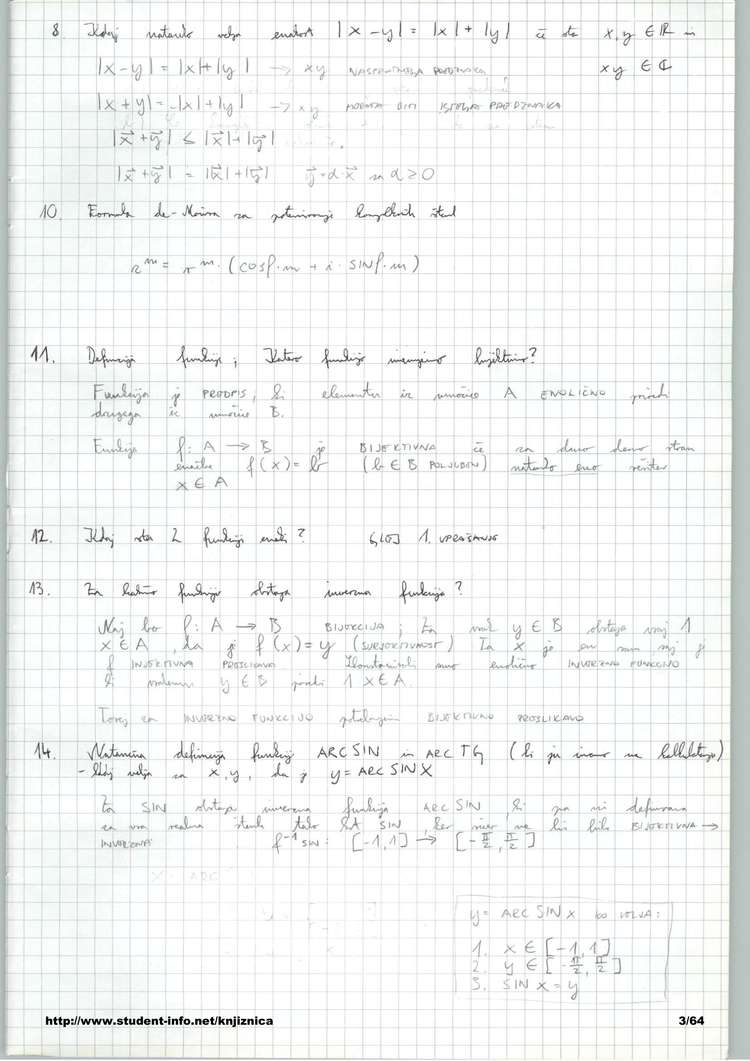 8 Kdaj natanko velja enakost |x-y| = |x| + |y| če sta x,y ∈ ℝ in
|x-y| = |x|+|y| → xy NASPROTNEGA PREDZNAKA xy ∈ ℂ
|x+y| = |x|+|y| → xy MORATA BITI ISTEGA PREDZNAKA
|x⃗+y⃗| ≤ |x⃗|+|y⃗|
|x⃗+y⃗| = |x⃗|+|y⃗| y⃗=α·x⃗ za α≥0
10. Formula de-Moivra za potenciranje kompleksnih števil
z^m = r^m · (cosφ·m + i· SINφ·m)
11. Definicija funkcije ; Katero funkcijo imenujemo bijektivno?
Funkcija je PREDPIS, ki elementu iz množice A ENOLIČNO priredi
drugega iz množice B.
Funkcija f: A → B je BIJEKTIVNA če za dano stran
enačbe f(x) = b (b ∈ B POLJUBEN) natanko eno rešitev
x ∈ A
12. Kdaj sta 2 funkciji enaki? GLEJ 1. VPRAŠANJE
13. Za katero funkcijo obstaja inverzna funkcija?
Naj bo f: A → B BIJEKCIJA ; Za vsak y ∈ B obstaja vsaj 1
x ∈ A, da je f(x) = y (SURJEKTIVNOST) Ta x je en sam saj je
f INJEKTIVNA PRESLIKAVA Konstruirali smo enolično INVERZNO FUNKCIJO
ki vsakemu y ∈ B priredi 1 x ∈ A
Torej za INVERZNO FUNKCIJO potrebujemo BIJEKTIVNO PRESLIKAVO
14. Natančna definicija funkcij ARC SIN in ARC TG (ki ju imamo na kalkulatorju)
- kdaj velja za x,y, da je y = ARC SIN X
Za SIN obstaja inverzna funkcija ARC SIN, ki pa ni definirana
za vsa realna števila tako kot SIN, ker sicer ne bi bila BIJEKTIVNA →
INVERZNA: f⁻¹ SIN: [-1,1] → [-π/2, π/2]
y = ARC SIN x ko VELJA:
1. x ∈ [-1,1]
2. y ∈ [-π/2, π/2]
3. SIN x = y
http://www.student-info.net/knjiznica 3/64